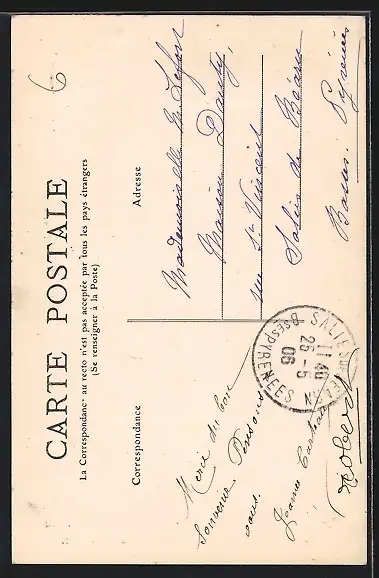 6
CARTE POSTALE
La Correspondance au recto n'est pas acceptée par tous les pays étrangers
(Se renseigner à la Poste)
Correspondance
Adresse
Merci du bon
souvenir Pensons
vous.
Jeanne
Robert
Mademoiselle
Maison
rue St Vincent
Salies de Béarn
Basses. Pyrénées
SALIES
11 40
25 - 5
06
PYRENEES